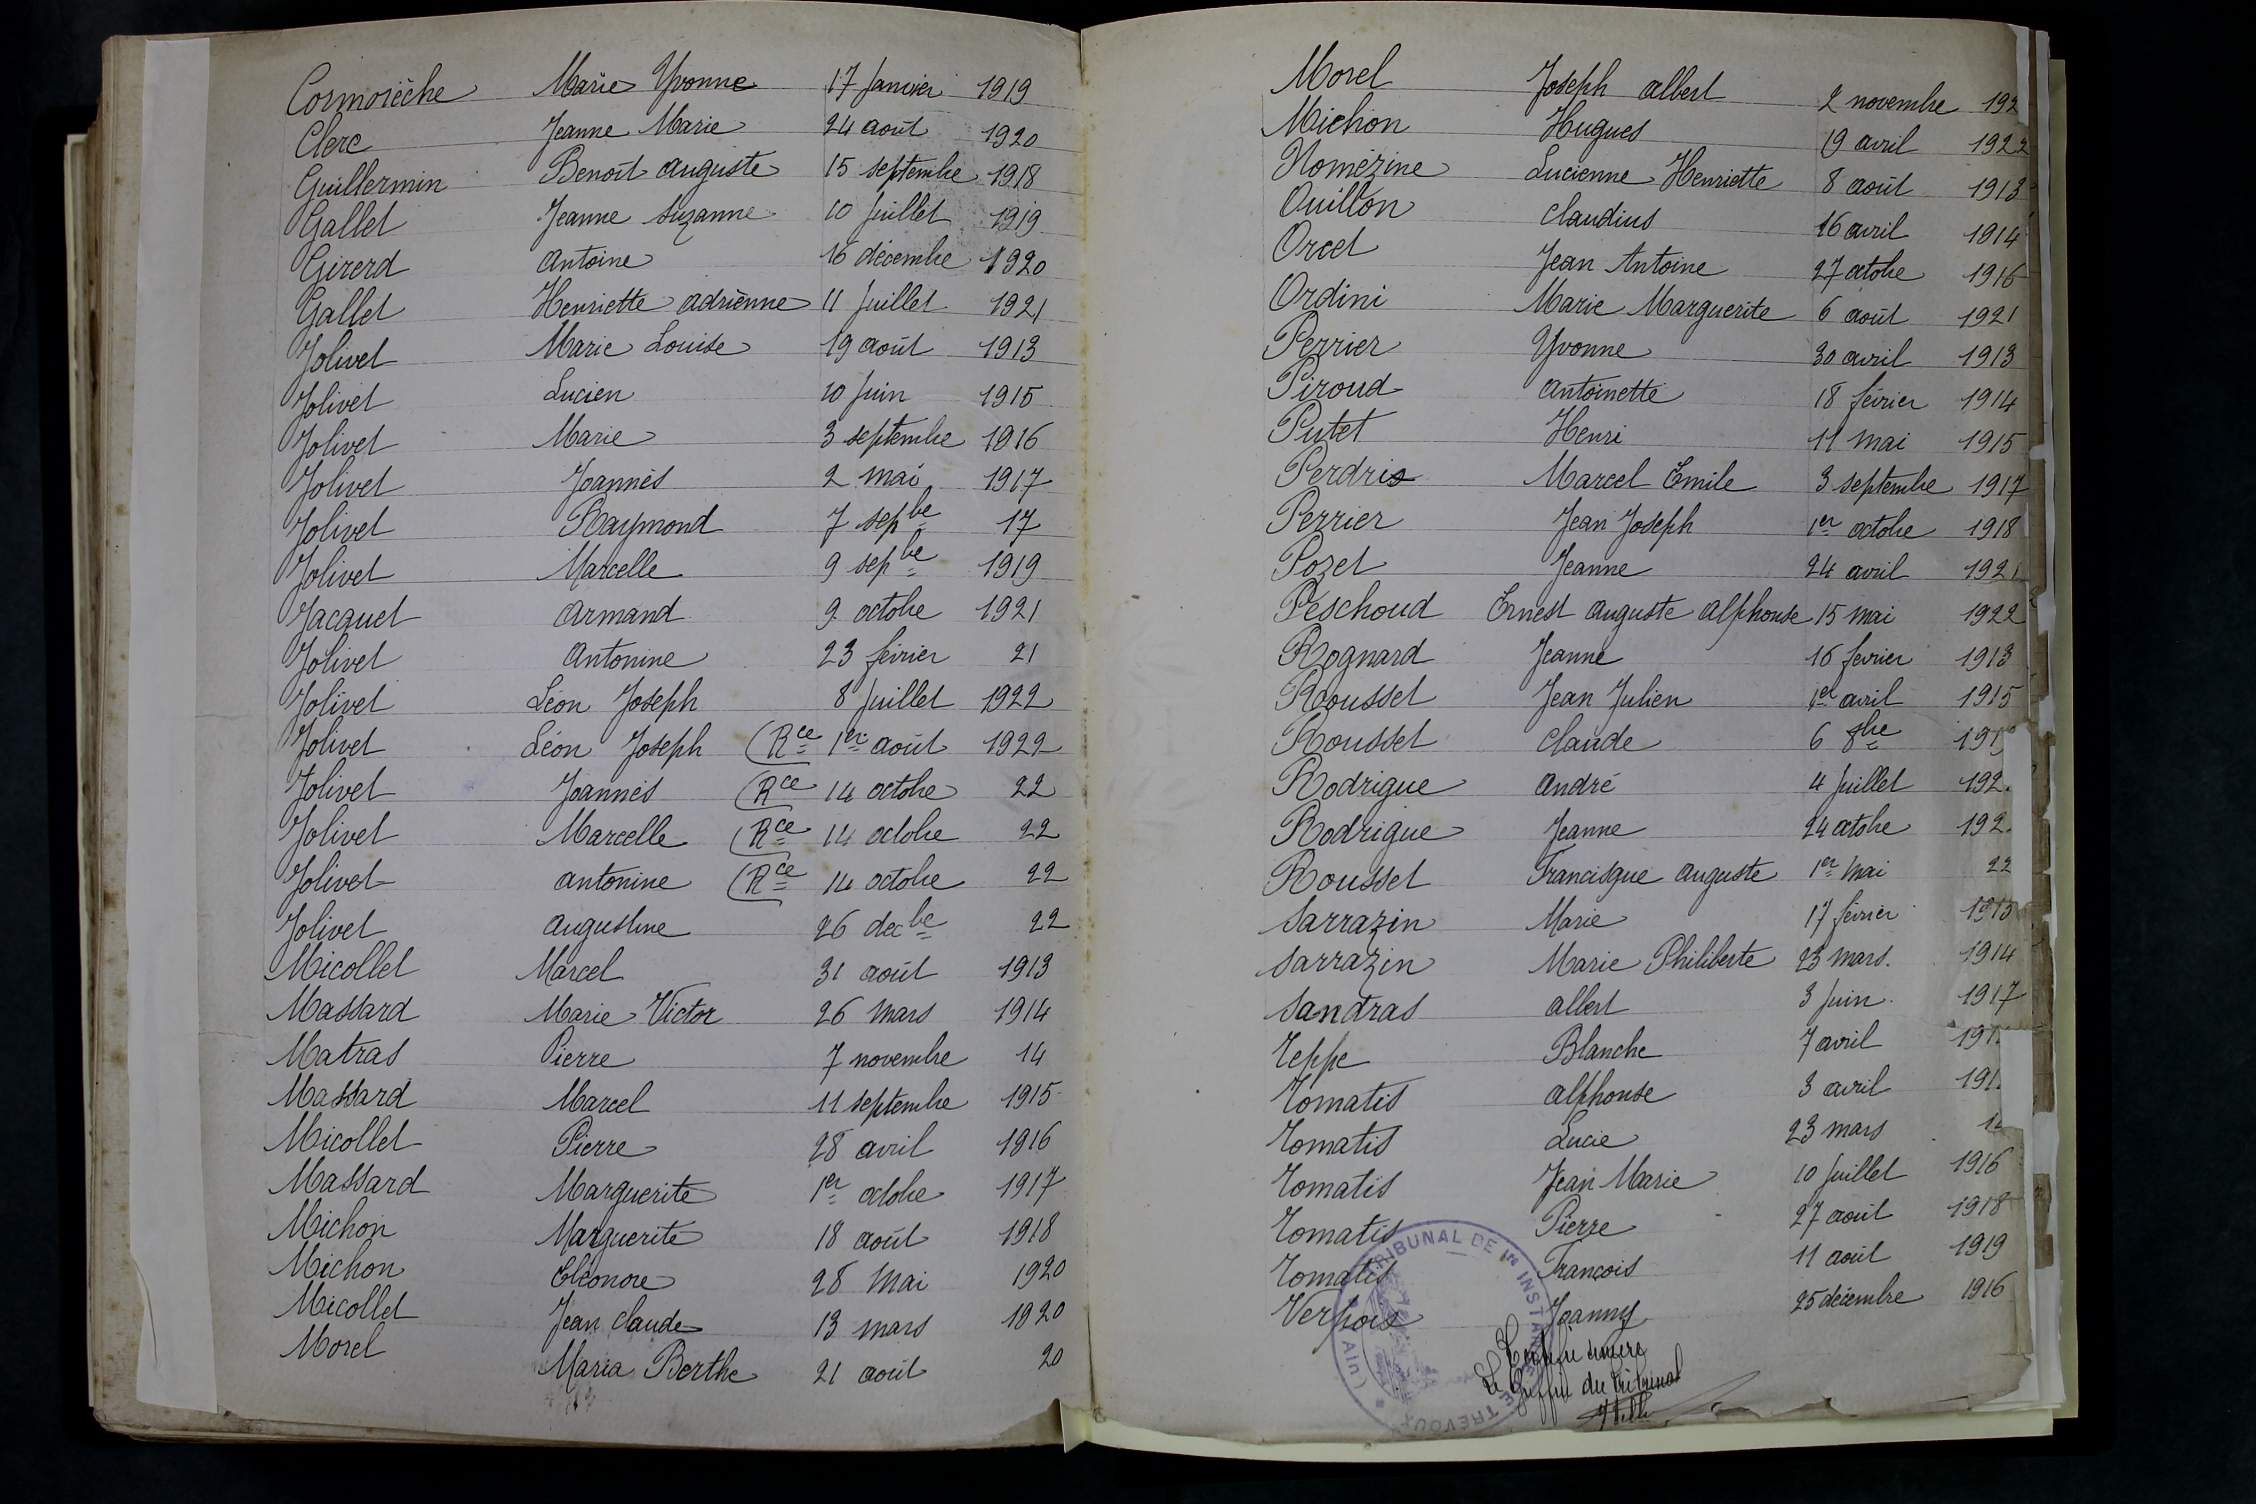 Cormorèche Marie Yvonne 17 Janvier 1919
Clerc Jeanne Marie 24 août 1920
Guillermin Benoît auguste 15 septembre 1918
Gallet Jeanne suzanne 10 Juillet 1919
Girerd antoine 16 décembre 1920
Gallet Henriette adrienne 11 Juillet 1921
Jolivet Marie Louise 19 août 1913
Jolivet Lucien 10 Juin 1915
Jolivet Marie 3 septembre 1916
Jolivet Joannès 2 mai 1917
Jolivet Raymond 7 sepbe 17
Jolivet Marcelle 9 sepbe 1919
Jacquet armand 9 octobre 1921
Jolivet antonine 23 février 21
Jolivet Léon Joseph 8 Juillet 1922
Jolivet Léon Joseph (Rce 1er août 1922
Jolivet Joannès (Rce 14 octobre 22
Jolivet Marcelle (Rce 14 octobre 22
Jolivet antonine (Rce 14 octobre 22
Jolivet augustine 26 decbe 22
Micollet Marcel 31 août 1913
Massard Marie Victor 26 mars 1914
Matras Pierre 7 novembre 14
Massard Marcel 11 septembre 1915
Micollet Pierre 28 avril 1916
Massard Marguerite 1er octobre 1917
Michon Marguerite 18 août 1918
Michon Eléonore 28 mai 1920
Micollet Jean claude 13 mars 1920
Morel Maria Berthe 21 août 20
Morel Joseph albert 2 novembre 192
Michon Hugues 19 avril 1922
Nomézine Lucienne Henriette 8 août 1913
Ouillon claudius 16 avril 1914
Orcet Jean Antoine 27 octobre 1916
Ordini Marie Marguerite 6 août 1921
Perrier Yvonne 30 avril 1913
Piroud antoinette 18 février 1914
Putet Henri 11 mai 1915
Perdrix Marcel Emile 3 septembre 1917
Perrier Jean Joseph 1er octobre 1918
Pozet Jeanne 24 avril 1921
Péschoud Ernest auguste alphonse 15 mai 1922
Rognard Jeanne 16 fevrier 1913
Rousset Jean Julien 1er avril 1915
Rousset claude 6 8bre 191
Rodrigue andré 4 Juillet 192
Rodrigue Jeanne 24 octobre 192
Rousset Francisque auguste 1er mai 22
Sarrazin Marie 17 février 1913
Sarrazin Marie Philiberte 23 mars 1914
Sandras albert 3 Juin 1917
Teppe Blanche 7 avril 191
Tomatis alphonse 3 avril 191
Tomatis Lucie 23 mars
Tomatis Jean Marie 10 Juillet 1916
Tomatis Pierre 27 août 1918
Tomatis François 11 août 1919
Verpoix Joanny 25 décembre 1916
Certifié sincère
Le Greffier du tribunal
TRIBUNAL DE 1re INSTANCE DE TREVOUX (Ain)